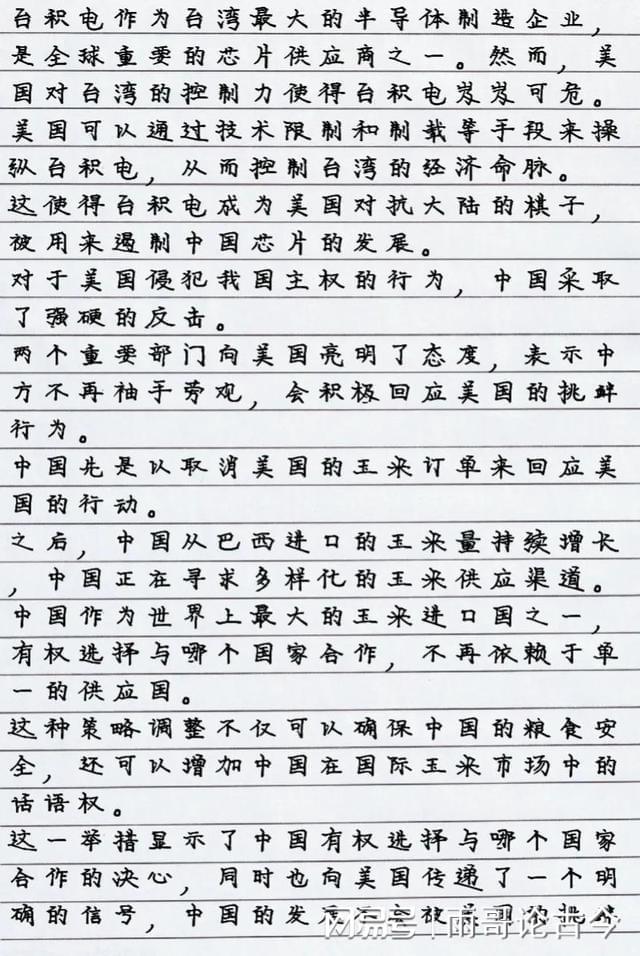 台积电作为台湾最大的半导体制造企业，
是全球重要的芯片供应商之一。然而，美
国对台湾的控制力使得台积电岌岌可危。
美国可以通过技术限制和制裁等手段来操
纵台积电，从而控制台湾的经济命脉。
这使得台积电成为美国对抗大陆的棋子，
被用来遏制中国芯片的发展。
对于美国侵犯我国主权的行为，中国采取
了强硬的反击。
两个重要部门向美国亮明了态度，表示中
方不再袖手旁观，会积极回应美国的挑衅
行为。
中国先是以取消美国的玉米订单来回应美
国的行动。
之后，中国从巴西进口的玉米量持续增长
，中国正在寻求多样化的玉米供应渠道。
中国作为世界上最大的玉米进口国之一，
有权选择与哪个国家合作，不再依赖于单
一的供应国。
这种策略调整不仅可以确保中国的粮食安
全，还可以增加中国在国际玉米市场中的
话语权。
这一举措显示了中国有权选择与哪个国家
合作的决心，同时也向美国传递了一个明
确的信号，中国的发展不会被美国的挑衅
网易号 | 雨哥论古今